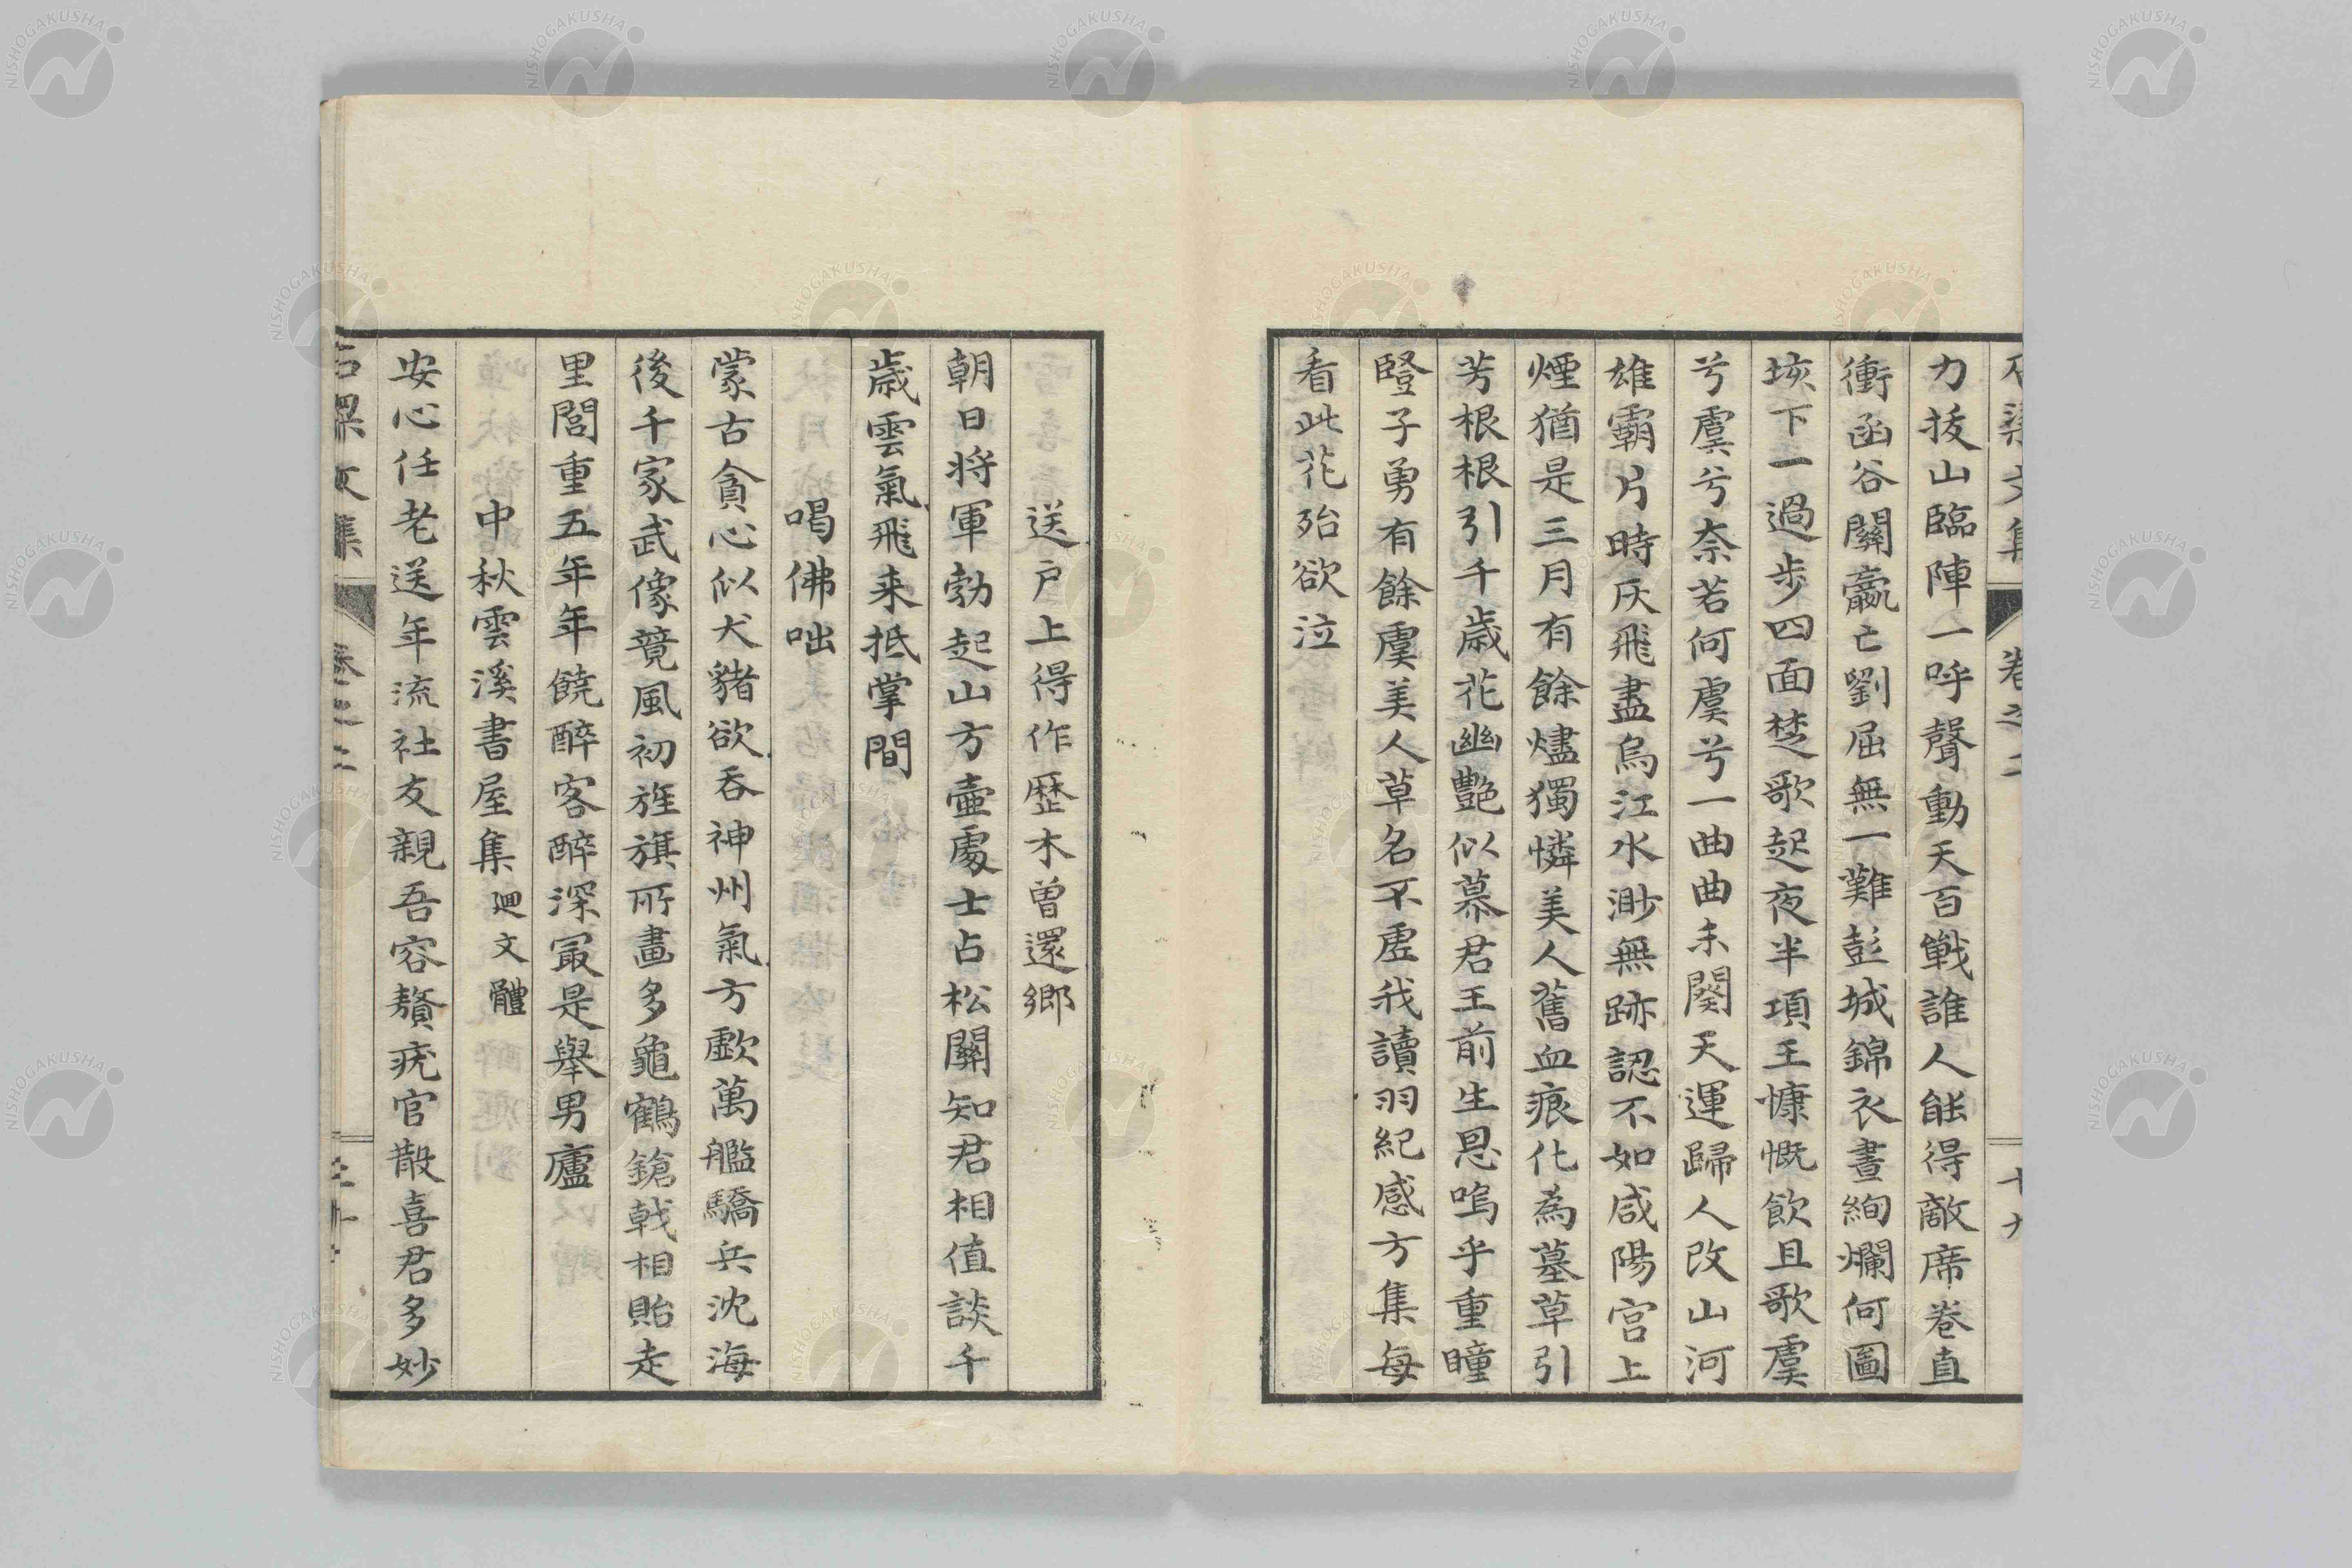 力拔山臨陣一呼聲動天百戰誰人能得敵席卷直
衝函谷關嬴亡劉屈無一難彭城錦衣晝絢爛何圖
垓下一過步四面楚歌起夜半項王慷慨飲且歌虞
兮虞兮奈若何虞兮一曲曲未闋天運歸人改山河
雄霸片時灰飛盡烏江水渺無跡認不如咸陽宮上
煙猶是三月有餘燼獨憐美人舊血痕化為墓草引
芳根根引千歲花幽艷似慕君王前生恩嗚乎重瞳
豎子勇有餘虞美人草名不虛我讀羽紀感方集每
看此花殆欲泣
送戶上得作歷木曾還鄉
朝日將軍勃起山方壺處士占松關知君相值談千
歲雲氣飛来抵掌間
喝佛咄
蒙古貪心似犬豬欲吞神州氣方歔萬艦驕兵沈海
後千家武像競風初旌旗所畫多龜鶴鎗戟相貽走
里閭重五年年饒醉客醉深冣是舉男廬
中秋雲溪書屋集廻文體
安心任老送年流社友親吾容贅疣官散喜君多妙
石渠文集 卷之二
NISHOGAKUSHA